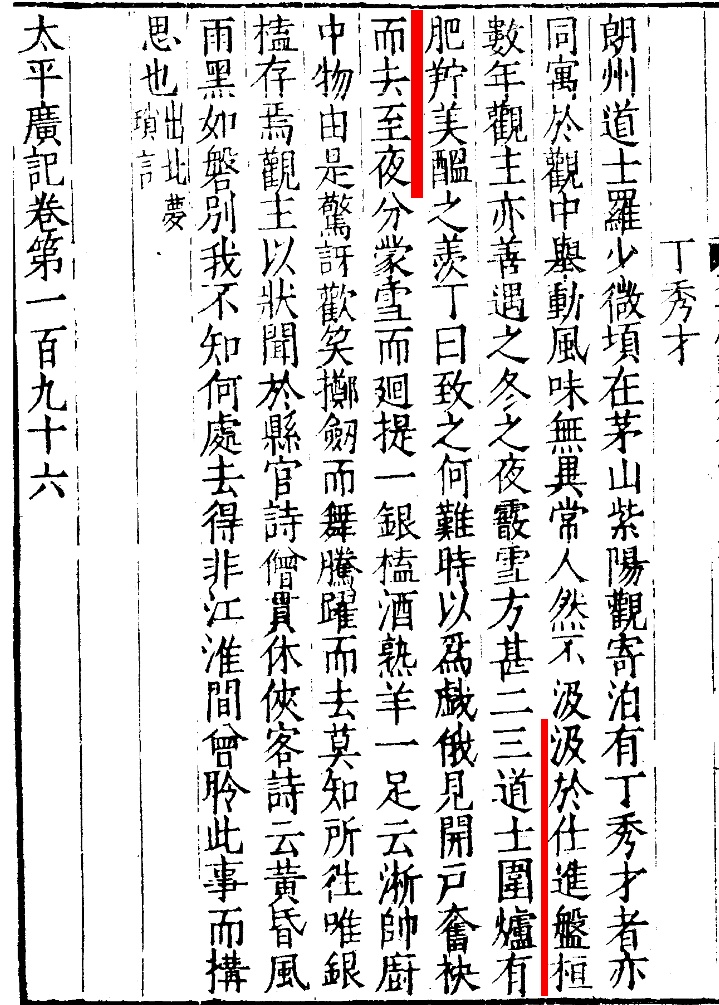 丁秀才
朗州道士羅少微頃在茅山紫陽觀寄泊有丁秀才者亦
同寓於觀中舉動風味無異常人然不汲汲於仕進盤桓
數年觀主亦善遇之冬之夜霰雪方甚二三道士圍爐有
肥羜美醞之羨丁曰致之何難時以爲戲俄見開戸奮袂
而去至夜分蒙雪而廻提一銀榼酒熟羊一足云浙帥廚
中物由是驚訝歡笑擲劒而舞騰躍而去莫知所徃唯銀
榼存焉觀主以狀聞於縣官詩僧貫休俠客詩云黃昏風
雨黑如磐別我不知何處去得非江淮間曾聆此事而搆
思也出北夢
瑣言
太平廣記卷第一百九十六